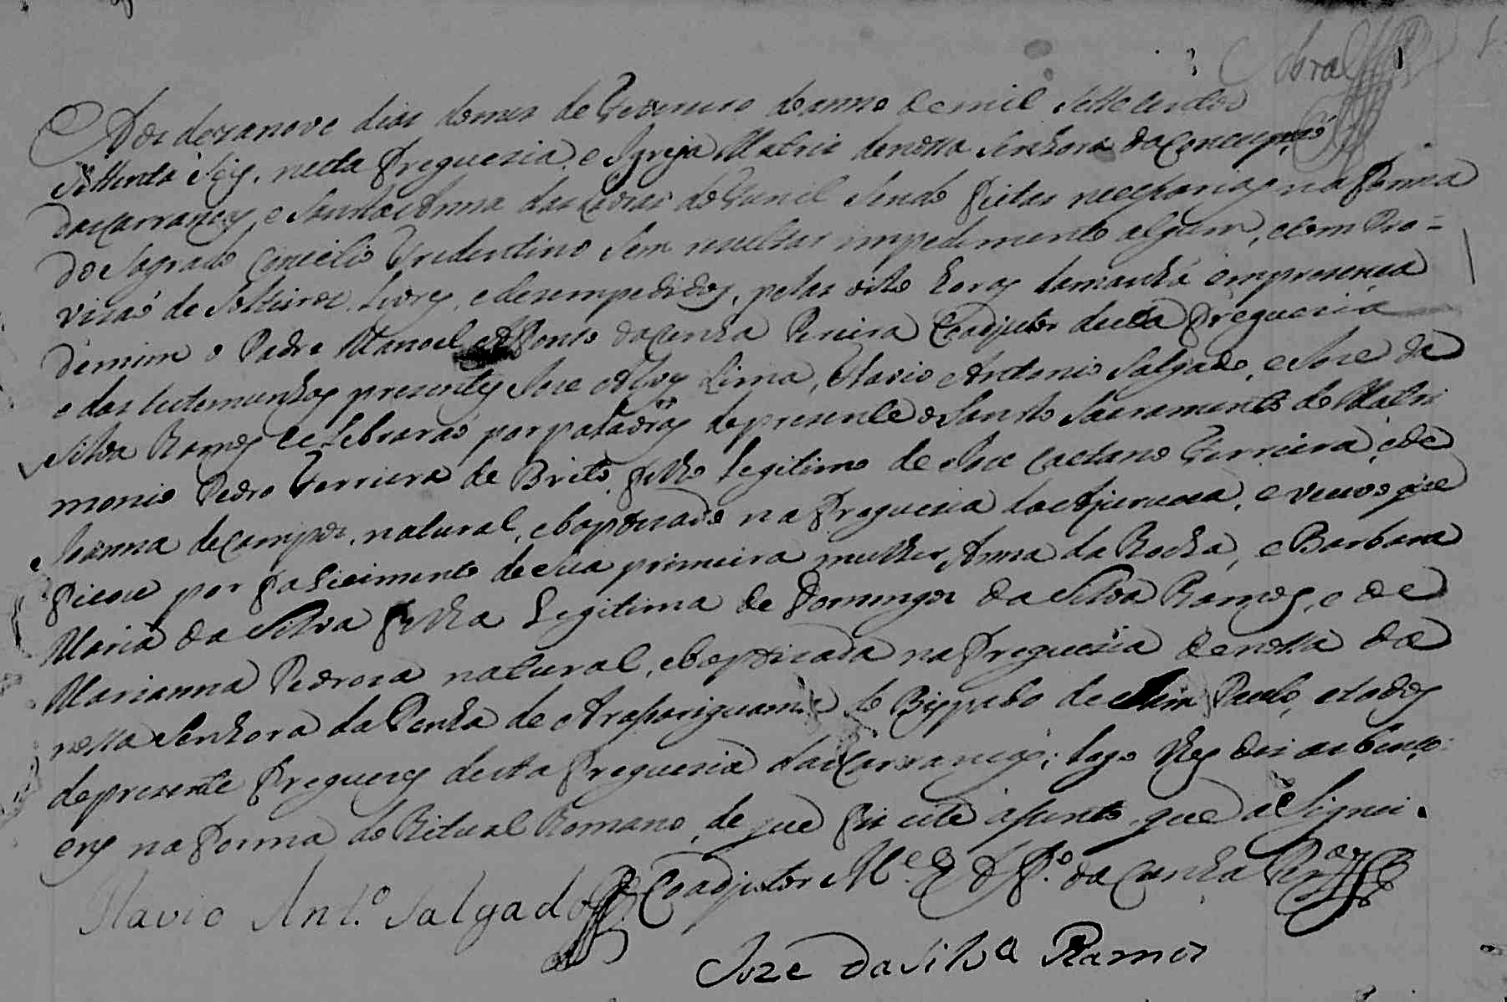 Sobral
Aos dezanove dias do mes de Fevereiro do anno de mil Sette centos
Settenta e Seis, nesta Freguezia, e Igreja Matriz de nossa Senhora da Conceyçaó
das Carrancas, e Santa Anna das Lavras do Funil Sendo feitas necessarias na forma
do Sagrado Concilio Tridentino Sem resultar impedimento algum, e com Pro=
vizaó de Solteiros Livres, e desempedidos, pelas oito horas da manhá em presença
de mim o Padre Manoel Affonso da Cunha Pereira Coadjutor desta Freguezia
e das testemunhas presentes Joze Alves Lima, Flavio Antonio Salgado, e Joze da
Silva Ramos Celebraraó por palavras de presente o Santo Sacramento do Matri
monio Pedro Ferreira de Brito filho legitimo de Joze Caetano Ferreira, e de
Joanna de Campos, natural, e bapticado na Freguezia da Ajuruoca, e veuvo que
ficou por falicimento de Sua primeira mulher Anna da Rocha, e Barbara
Maria da Silva filha Legitima de Domingos da Silva Ramos, e de
Marianna Pedroza natural, e bapticada na Freguezia de nossa da
nossa Senhora da Penha de Araçariguama do Bispado de Sam Paulo, e todos
de presente Freguezes desta Freguezia das Carrancas; logo lhes dei as benço
ens na forma do Ritual Romano, de que fis este asento, que aSignei.
O Coadjutor M.el Aff.o da Cunha Per.a
Flavio Ant.o Salgado
Joze da Silva Ramos